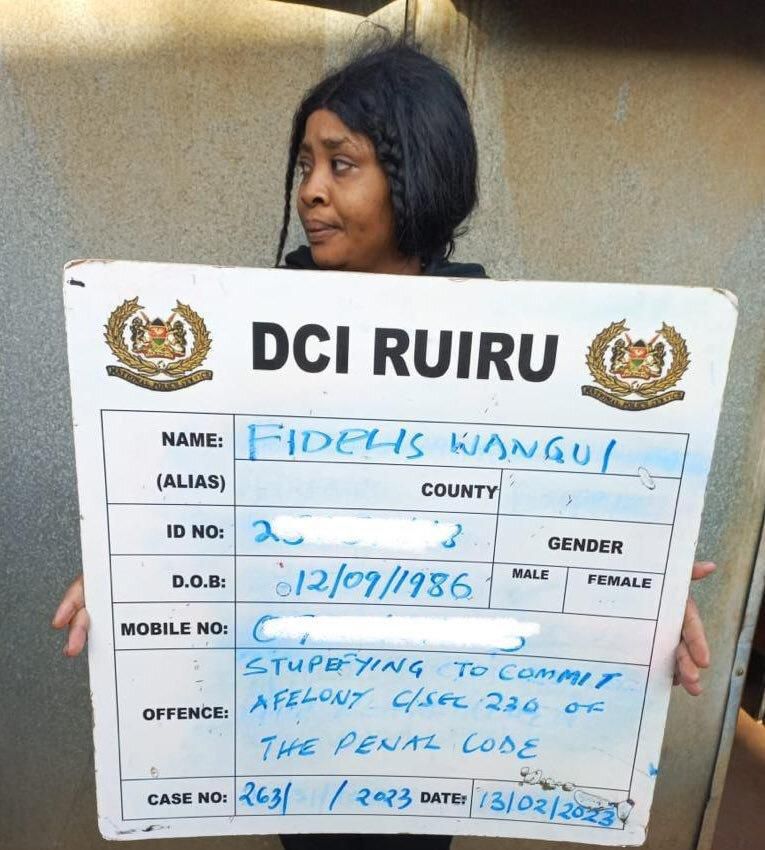 DCI RUIRU
NATIONAL POLICE SERVICE
NATIONAL POLICE SERVICE
NAME: FIDELIS WANGUI
(ALIAS) COUNTY
ID NO: GENDER
D.O.B: 12/09/1986 MALE FEMALE
MOBILE NO:
OFFENCE: STUPEFYING TO COMMIT
AFELONY C/SEC 230 OF
THE PENAL CODE
CASE NO: 263/ /2023 DATE: 13/02/2023